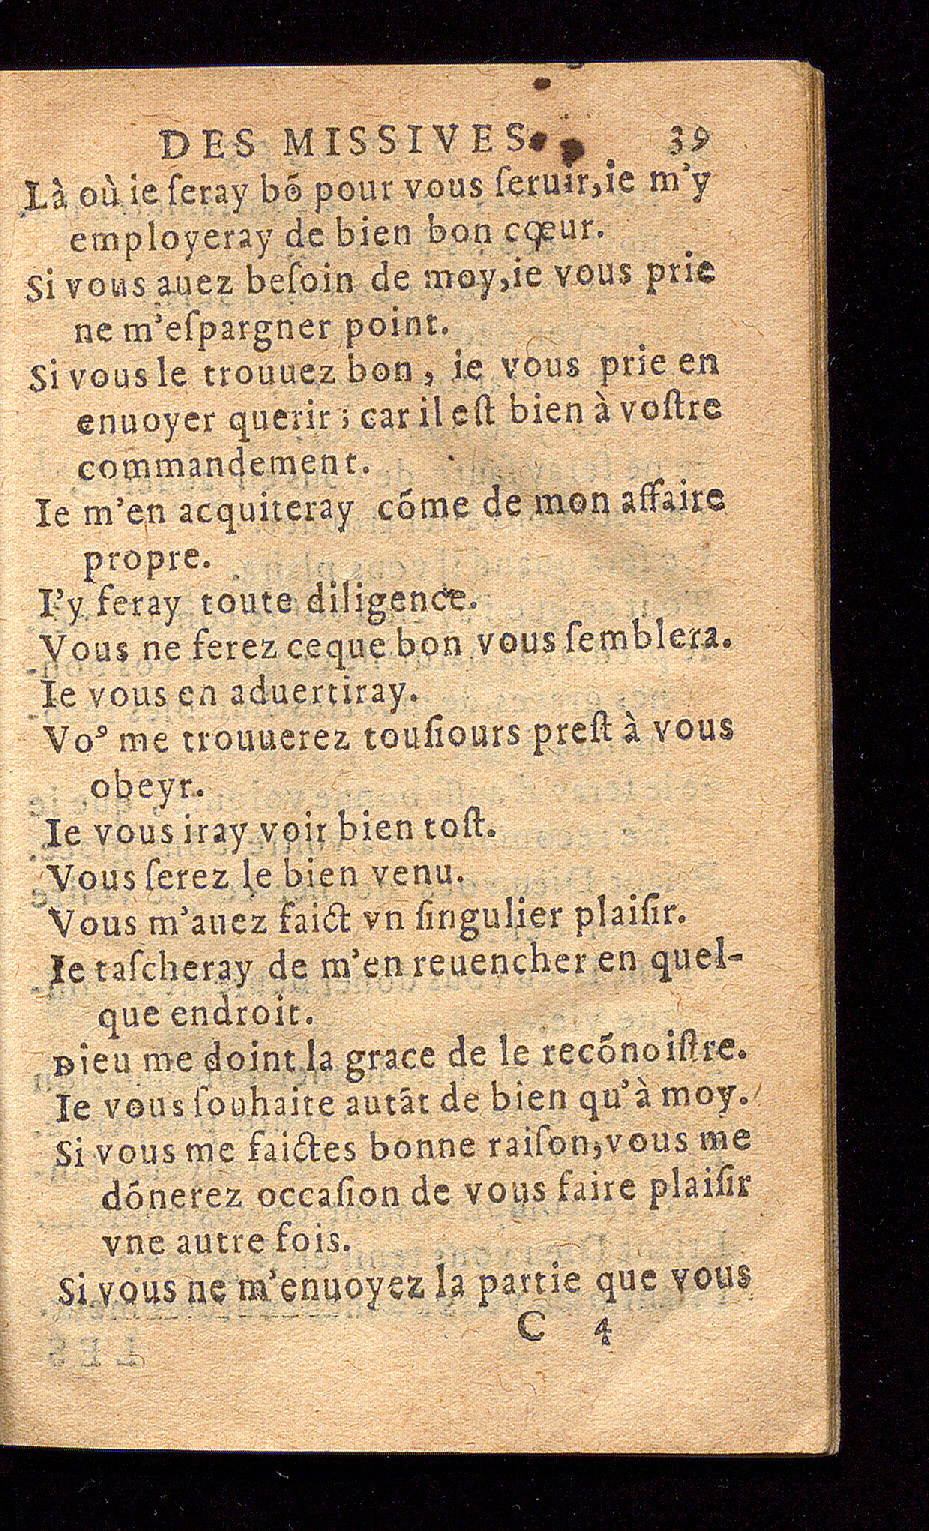 DES MISSIVES. 39
Là où ie ſeray bõ pour vous ſeruir, ie m'y
employeray de bien bon cœur.
Si vous auez beſoin de moy, ie vous prie
ne m'eſpargner point.
Si vous le trouuez bon, ie vous prie en
enuoyer querir; car il eſt bien à voſtre
commandement.
Ie m'en acquiteray cõme de mon affaire
propre.
I'y feray toute diligence.
Vous ne ferez ceque bon vous ſemblera.
Ie vous en aduertiray.
Voꝰ me trouuerez touſiours preſt à vous
obeyr.
Ie vous iray voir bien toſt.
Vous ſerez le bien venu.
Vous m'auez faict vn ſingulier plaiſir.
Ie taſcheray de m'en reuencher en quel-
que endroit.
Dieu me doint la grace de le recõnoiſtre.
Ie vous ſouhaite autãt de bien qu'à moy.
Si vous me faictes bonne raiſon, vous me
dõnerez occaſion de vous faire plaiſir
vne autre fois.
Si vous ne m'enuoyez la partie que vous
C 4